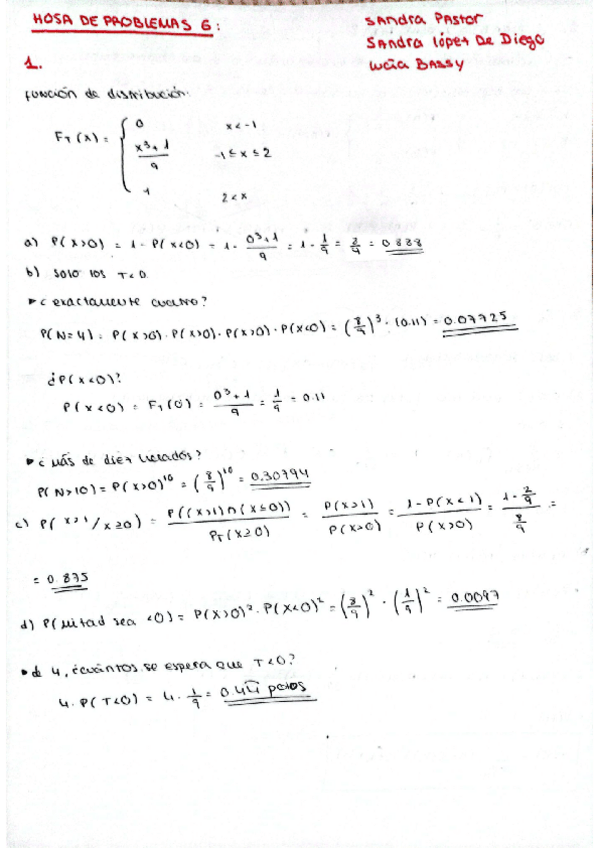 HOJA DE PROBLEMAS 6:
Sandra Pastor
Sandra López De Diego
Lucía Bassy
1.
Función de distribución:
F_T(x) = { 0 x<-1
x³+1/9 -1≤x≤2
1 2<x
a) P(x>0) = 1 - P(x<0) = 1 - 0³+1/9 = 1 - 1/9 = 8/9 = 0.888
b) Solo los T<0.
¿exactamente cuatro?
P(N=4) = P(x>0) · P(x>0) · P(x>0) · P(x<0) = (8/9)³ · (0.11) = 0.07725
¿P(x<0)?
P(x<0) = F_T(0) = 0³+1/9 = 1/9 = 0.11
¿Más de diez?
P(N>10) = P(x>0)¹⁰ = (8/9)¹⁰ = 0.30794
c) P(x>1/x≥0) = P((x>1)∩(x≥0))/P_T(x≥0) = P(x>1)/P(x>0) = 1-P(x<1)/P(x>0) = 1-2/9 / 8/9 =
= 0.875
d) P(mitad sea <0) = P(x>0)² · P(x<0)² = (8/9)² · (1/9)² = 0.0097
de 4, ¿cuántos se espera que T<0?
4 · P(T<0) = 4 · 1/9 = 0.44